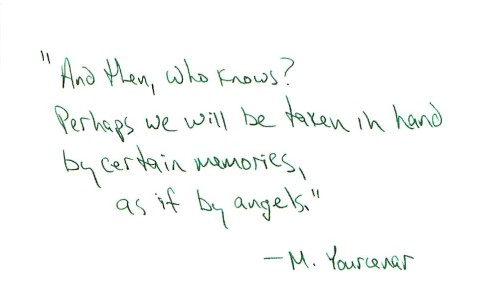 "And then, who knows?
Perhaps we will be taken in hand
by certain memories,
as if by angels."
—M. Yourcenar